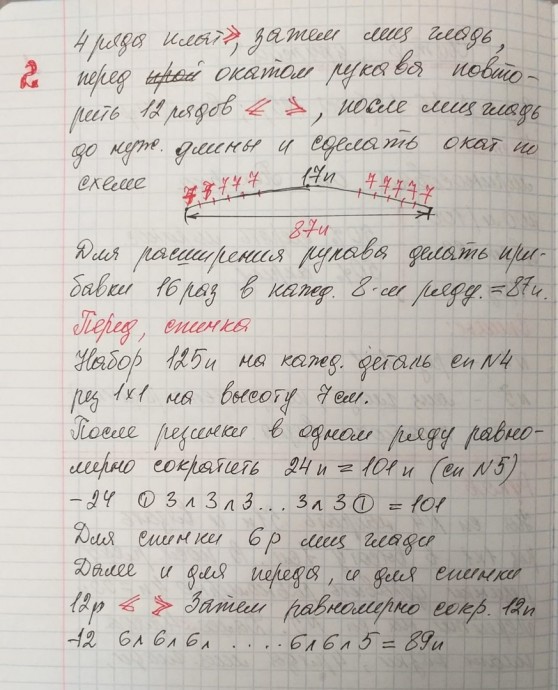 4 ряда плат», затем лиц гладь,
2
перед окатом рукава повто-
рить 12 рядов « », после лиц гладь
до нуж. длины и сделать окат по
схеме
7 7 7 7 7 17п 7 7 7 7 7
87п
Для расширения рукава делать при-
бавки 16 раз в кажд. 8-м ряду. = 87п.
Перед, спинка
Набор 125п на кажд. деталь сп N4
рез 1х1 на высоту 7см.
После резинки в одном ряду равно-
мерно сократить 24п = 101п (сп N5)
-24 ① 3 ʌ 3 ʌ 3 ... 3 ʌ 3 ① = 101
Для спинки 6р лиц глади
Далее и для переда, и для спинки
12р « » Затем равномерно сокр. 12п
-12 6 ʌ 6 ʌ 6 ʌ ..... 6 ʌ 6 ʌ 5 = 89п